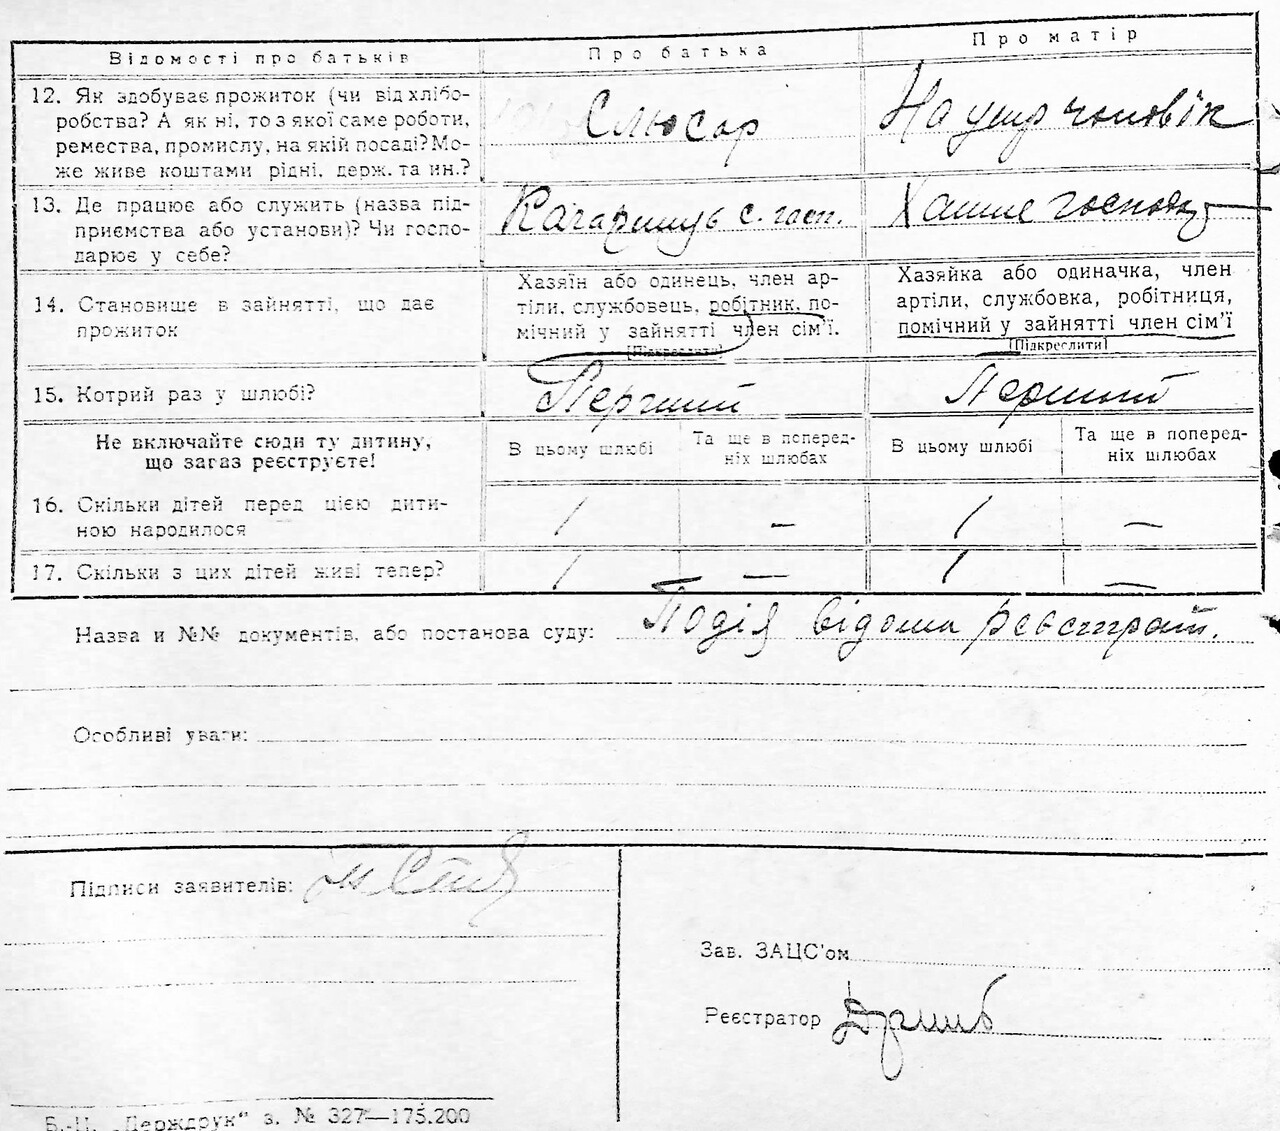 Відомості про батьків
Про батька
Про матір
12. Як здобуває прожиток (чи від хлібо-
робства? А як ні, то з якої саме роботи,
ремества, промислу, на якій посаді? Мо-
же живе коштами рідні, держ. та ин.?
Слюсар
На утр чоловік
13. Де працює або служить (назва під-
приємства або установи)? Чи госпо-
дарює у себе?
с. госп.
Хатнє господ
14. Становище в зайнятті, що дає
прожиток
Хазяїн або одинець, член ар-
тіли, службовець, робітник, по-
мічний у зайнятті член сім'ї.
(Підкреслити)
Хазяйка або одиначка, член
артіли, службовка, робітниця,
помічний у зайнятті член сім'ї
(Підкреслити)
15. Котрий раз у шлюбі?
Перший
Перший
Не включайте сюди ту дитину,
що зараз реєструєте!
В цьому шлюбі
Та ще в поперед-
ніх шлюбах
В цьому шлюбі
Та ще в поперед-
ніх шлюбах
16. Скільки дітей перед цією дити-
ною народилося
1
—
1
—
17. Скільки з цих дітей живі тепер?
1
—
1
—
Назва и №№ документів, або постанова суду: Подія відома реєстрат.
Особливі уваги:
Підписи заявителів:
Зав. ЗАЦС'ом
Реєстратор
Б.-Ц. „Держдрук" з. № 327—175.200